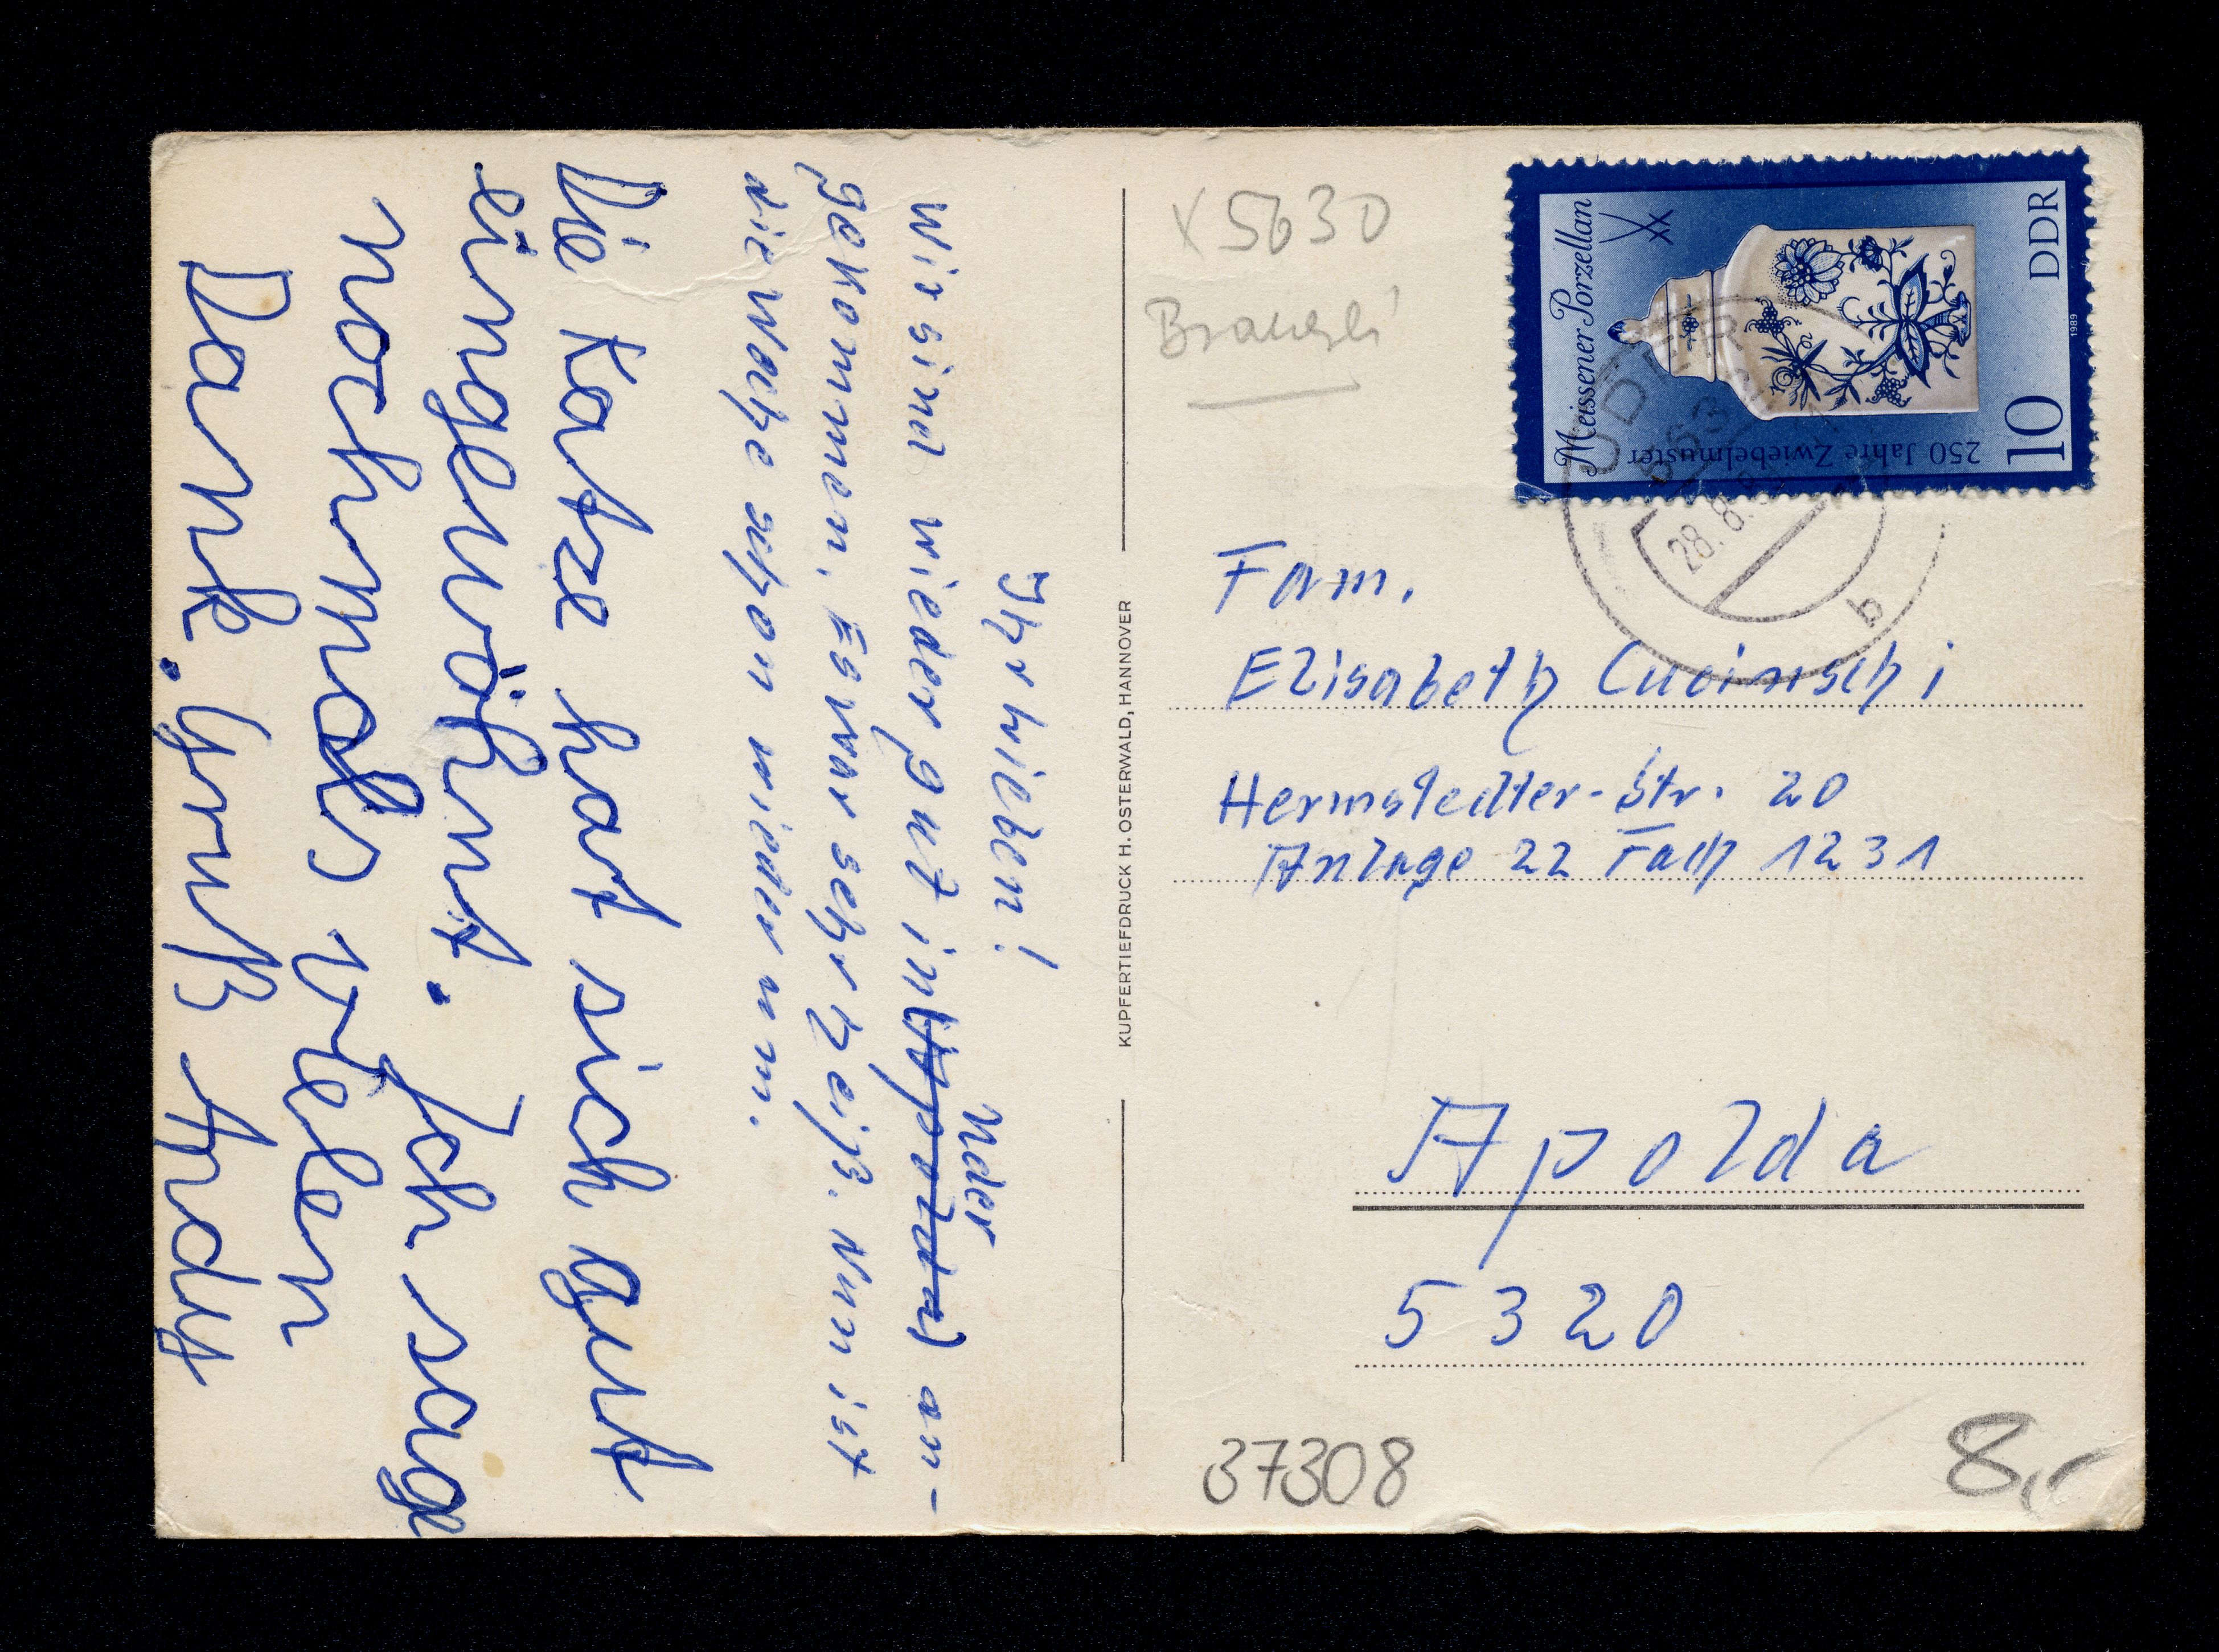 Ihr Lieben!
Uder
Wir sind wieder gut in (Apolda) an-
gekommen. Es war sehr heiß. Nun ist
die Woche schon wieder um.
Die Katze hat sich gut
eingewöhnt. Ich sage
nochmals vielen
Dank. Gruß Andy
KUPFERTIEFDRUCK H. OSTERWALD, HANNOVER
x 5630
Meissener Porzellan
250 Jahre Zwiebelmuster
10 DDR
1989
UDER
5631
28.8.
b
Fam.
Elisabeth
Hermstedter-Str. 20
Anlage 22 Fach 1231
Apolda
5320
37308
8,-